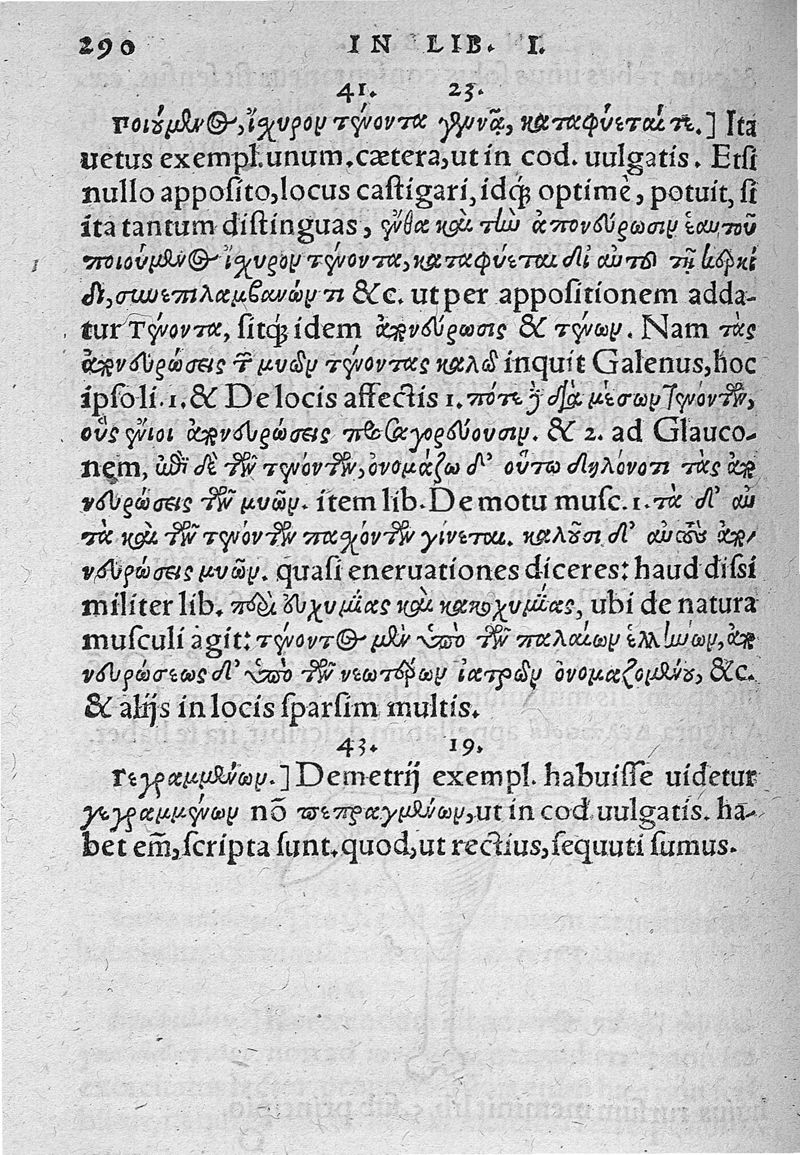 290 IN LIB. I.
41. 23.
Ποιούμενος, ἴχυρον τένοντα γεννᾷ, καταφύεται τε.] Ita
uetus exempl. unum. cætera, ut in cod. uulgatis. Etsi
nullo apposito, locus castigari, idq́ꝫ optimè, potuit, si
ita tantum distinguas, ἔνθα καὶ τὴν ἀπονεύρωσιν ἑαυτοῦ
ποιούμενος ἴχυρον τένοντα, καταφύεται δι' αὐτοῦ τῇ κερκί
δι, συνεπιλαμβανών τι &c. ut per appositionem adda-
tur Τένοντα, sitq́ꝫ idem ἀπονεύρωσις & τένων. Nam τὰς
ἀπονευρώσεις τῶν μυῶν τένοντας καλῶ inquit Galenus, hoc
ipso li. 1. & De locis affectis 1. πότε δὲ διὰ μέσων τενόντων,
οὓς ἔνιοι ἀπονευρώσεις προσαγορεύουσιν. & 2. ad Glauco-
nem, ἐπὶ δὲ τῶν τενόντων, ὀνομάζω δ' οὕτω δηλόνοτι τὰς ἀπο
νευρώσεις τῶν μυῶν. item lib. De motu musc. 1. τὰ δ' αὐ
τὰ καὶ τῶν τενόντων παχόντων γίνεται. καλοῦσι δ' αὐτοὺς ἀπο-
νευρώσεις μυῶν. quasi eneruationes diceres: haud dissi
militer lib. περὶ εὐχυμίας καὶ κακοχυμίας, ubi de natura
musculi agit: τένοντος μὲν ὑπὸ τῶν παλαιῶν ἑλλήνων, ἀπο
νευρώσεως δ' ὑπὸ τῶν νεωτέρων ἰατρῶν ὀνομαζομένου, &c.
& alijs in locis sparsim multis.
43. 19.
Γεγραμμένων.] Demetrij exempl. habuisse uidetur
γεγραμμένων nō πεπραγμένων, ut in cod. uulgatis. ha-
bet em̄, scripta sunt. quod, ut rectius, sequuti sumus.